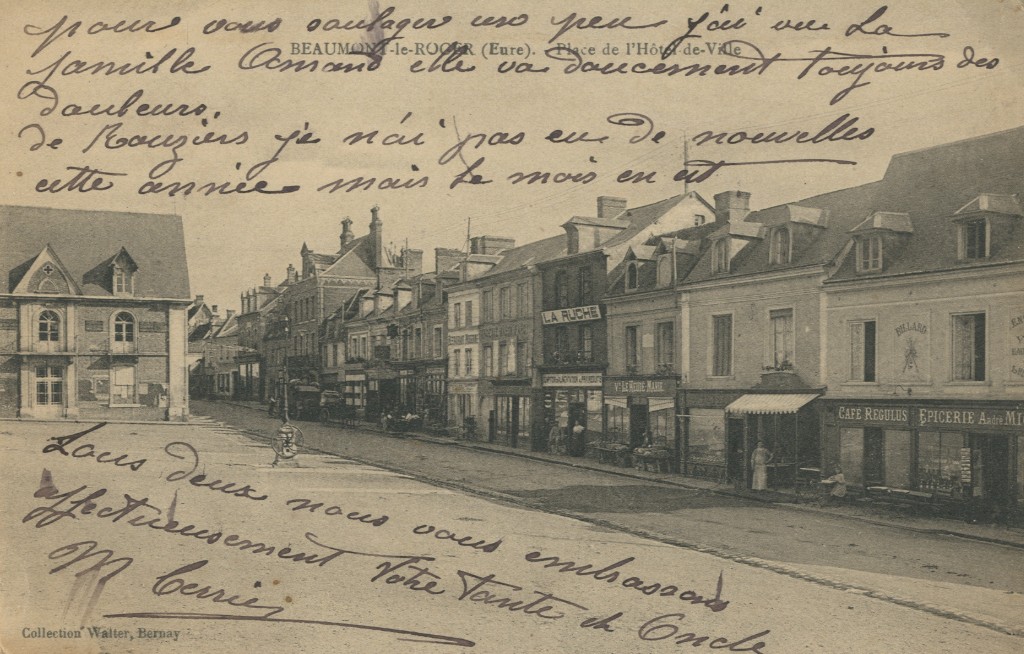 pour vous soulager un peu j'ai vu La
BEAUMONT-le-ROGER (Eure). - Place de l'Hôtel-de-Ville
famille Amand elle va doucement toujours des
douleurs.
de Rouziers je n'ai pas eu de nouvelles
cette année mais le mois en est
LA RUCHE
Vve LE REGLE-MARIE
BILLARD
CAFÉ REGULUS EPICERIE André MI
Tous deux nous vous embrassons
affectueusement Votre Tante & Oncle
M Cerrier
Collection Walter, Bernay